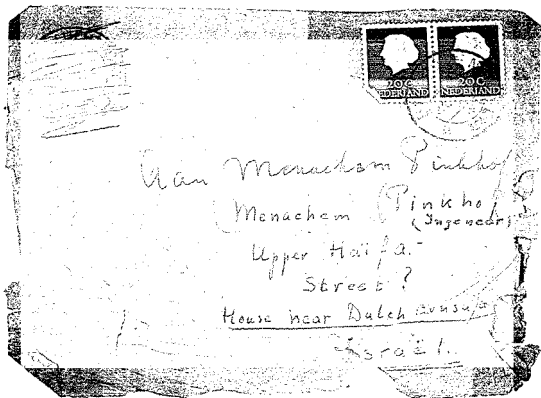 20 C 20 C
NEDERLAND NEDERLAND
Aan Menachem Pinkhof
(Menachem (Pinkhof
(Ingeneor)
Upper Haïfa.-
Street?
House near Dutch
Israël.